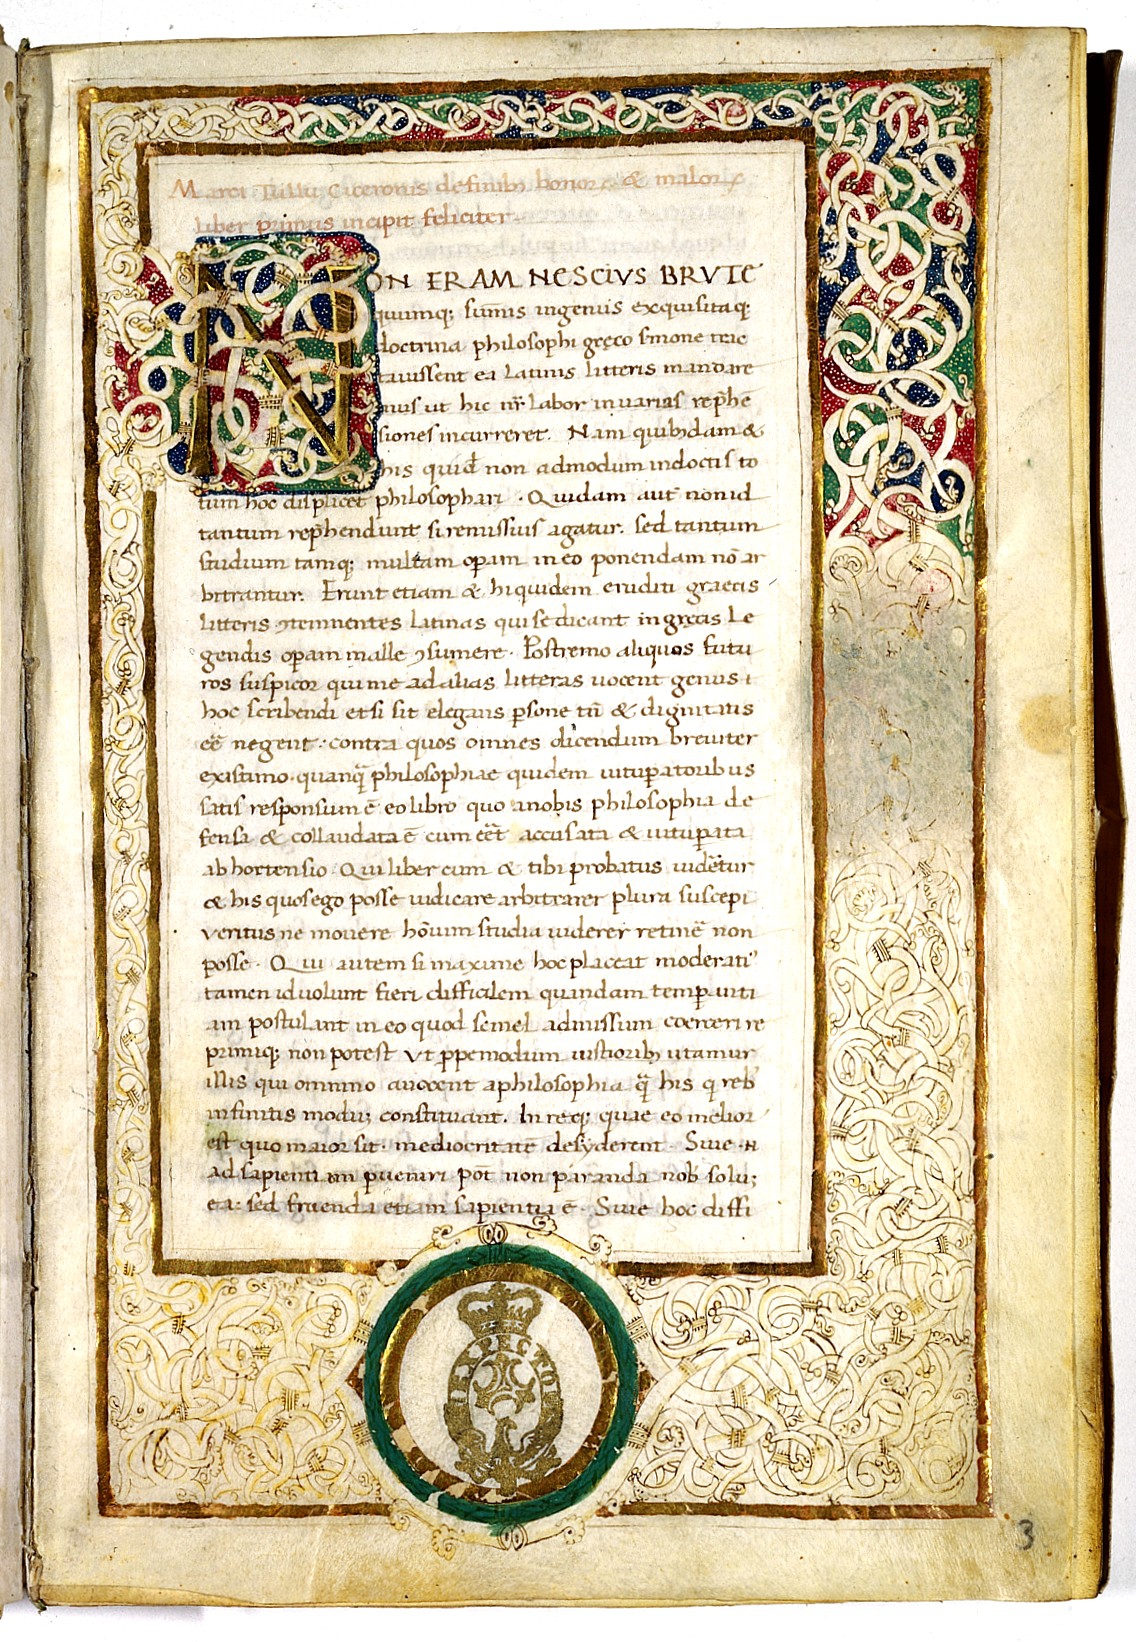 Marci Tullii Ciceronis de finibꝫ bonoꝝ & maloꝝ
liber primus incipit feliciter.
NON ERAM NESCIVS BRVTE
quumq; sūmis ingeniis exquisitaq;
doctrina philosophi gręco s̄mone trac
tauissent ea latinis litteris mandare
mus ut hic nr̄ labor in uarias rep̄hē
siones incurreret. Nam quibꝫdam &
his quid̄ non admodum indoctis to
tum hoc displicet philosophari. Quidam aut̄ non id
tantum rep̄hendunt si remissius agatur. sed tantum
studium tamq; multam oꝑam in eo ponendam nō ar
bitrantur. Erunt etiam & hi quidem eruditi graecis
litteris ꝯtemnentes latinas qui se dicant in gręcis le
gendis oꝑam malle ꝯsumere. Postremo aliquos futu
ros suspicor qui me ad alias litteras uocent genus i
hoc scribendi et si sit elegans ꝑsone tn̄ & dignitatis
eē negent. contra quos omnes dicendum breuiter
existimo. quanq̄ philosophiae quidem uituꝑatoribus
satis responsum ē eo libro quo a nobis philosophia de
fensa & collaudata ē cum eēt accusata & uituꝑata
ab hortensio. Qui liber cum & tibi probatus uidēetur
& his quos ego posse iudicare arbitrarer plura suscepi
ueritus ne mouere hoīum studia uiderer retinē non
posse. Qui autem si maxime hoc placeat moderati᷒
tamen id uolunt fieri difficilem quandam temꝑanti
am postulant in eo quod semel admissum coerceri re
primiq; non potest ut ꝓpemodum iustioribꝫ utamur
illis qui omnino auocent a philosophia q̄ his q reb᷒
infinitis modū constituant. In req; quae eo melior
est quo maior sit. mediocritatē desyderent. Siue .n.
ad sapientiam ꝑueniri pot̄ non paranda nob̄ solū;
ea: sed fruenda etiam sapientia ē. Siue hoc diffi
JE N'EXPECTOE
3